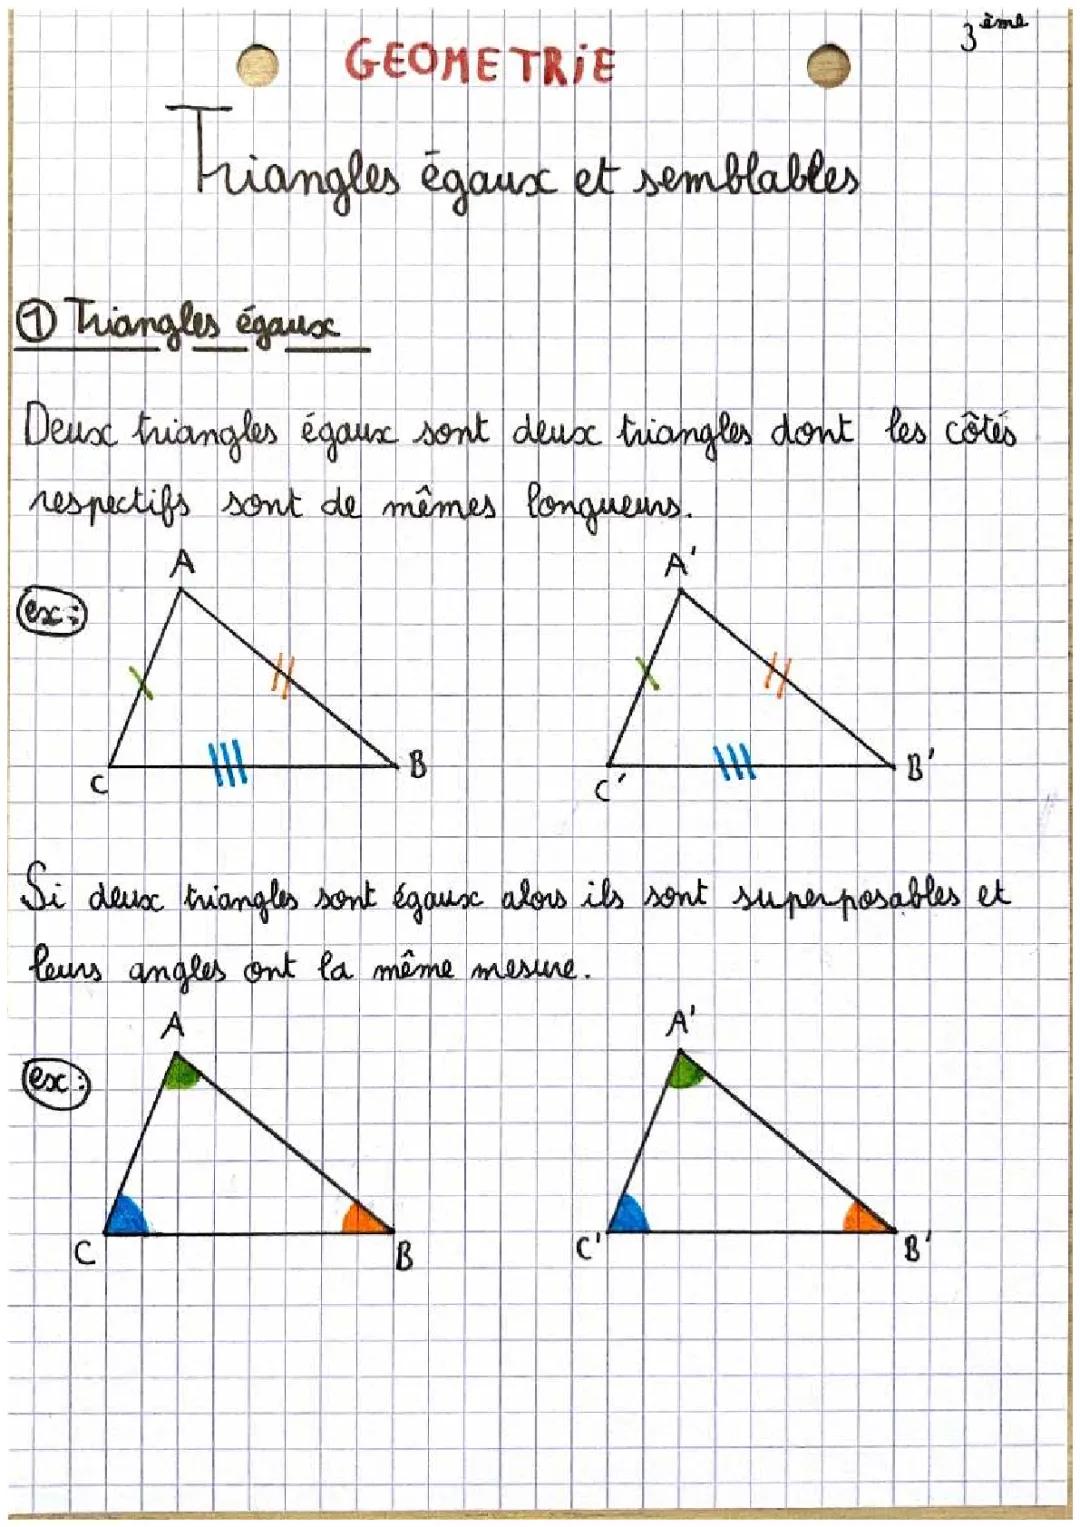 3ème
GEOMETRiE
Triangles égaux et semblables
① Triangles égaux
Deux triangles égaux sont deux triangles dont les côtés
respectifs sont de mêmes longueurs.
ex:
A
A'
C
B
C'
B'
Si deux triangles sont égaux alors ils sont superposables et
leurs angles ont la même mesure.
ex:
A
A'
C
B
C'
B'